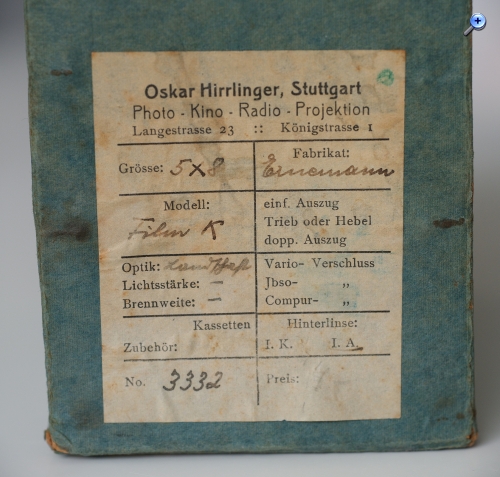 Oskar Hirrlinger, Stuttgart
Photo - Kino - Radio - Projektion
Langestrasse 23 :: Königstrasse 1
Grösse: 5x8
Fabrikat:
Ernemann
Modell:
Film K
einf. Auszug
Trieb oder Hebel
dopp. Auszug
Optik:
Lichtstärke: —
Brennweite: —
Vario- Verschluss
Jbso- „
Compur- „
Kassetten
Zubehör:
Hinterlinse:
I. K. I. A.
No. 3332
Preis: